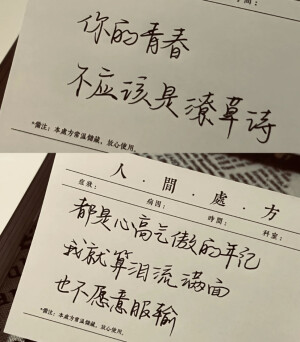 時間：
你的青春
不应该是潦草诗
*備注：本處方常温儲藏，放心使用。
人·間·處·方
症狀：
病因：
時間：
科室：
都是心高气傲的年纪
我就算泪流满面
也不愿意服输
*備注：本處方常温儲藏，放心使用。